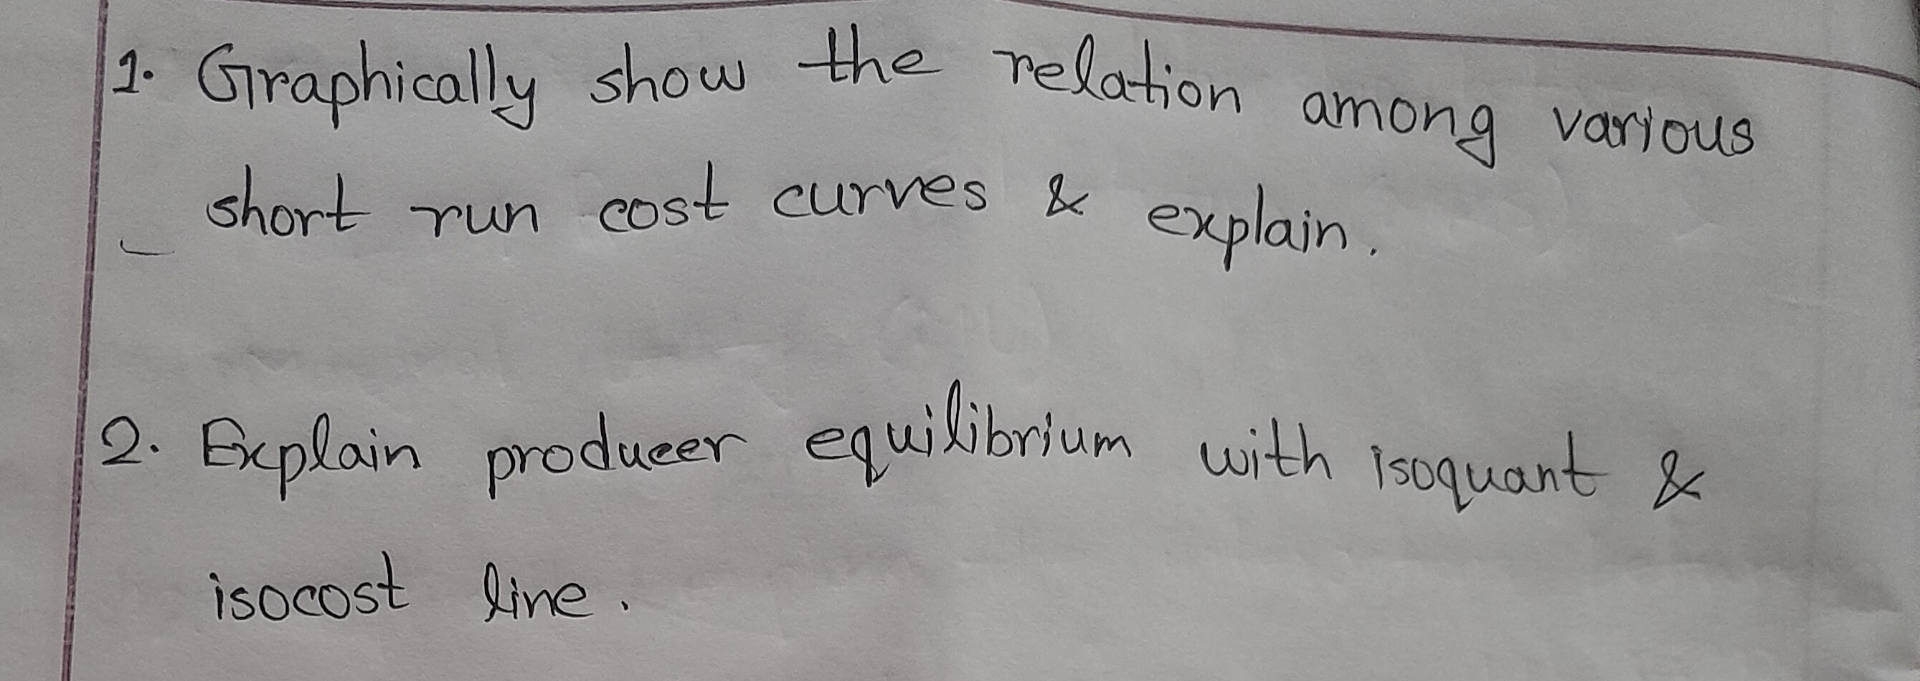 1. Graphically show the relation among various
short run cost curves & explain.
2. Explain producer equilibrium with isoquant &
isocost line.